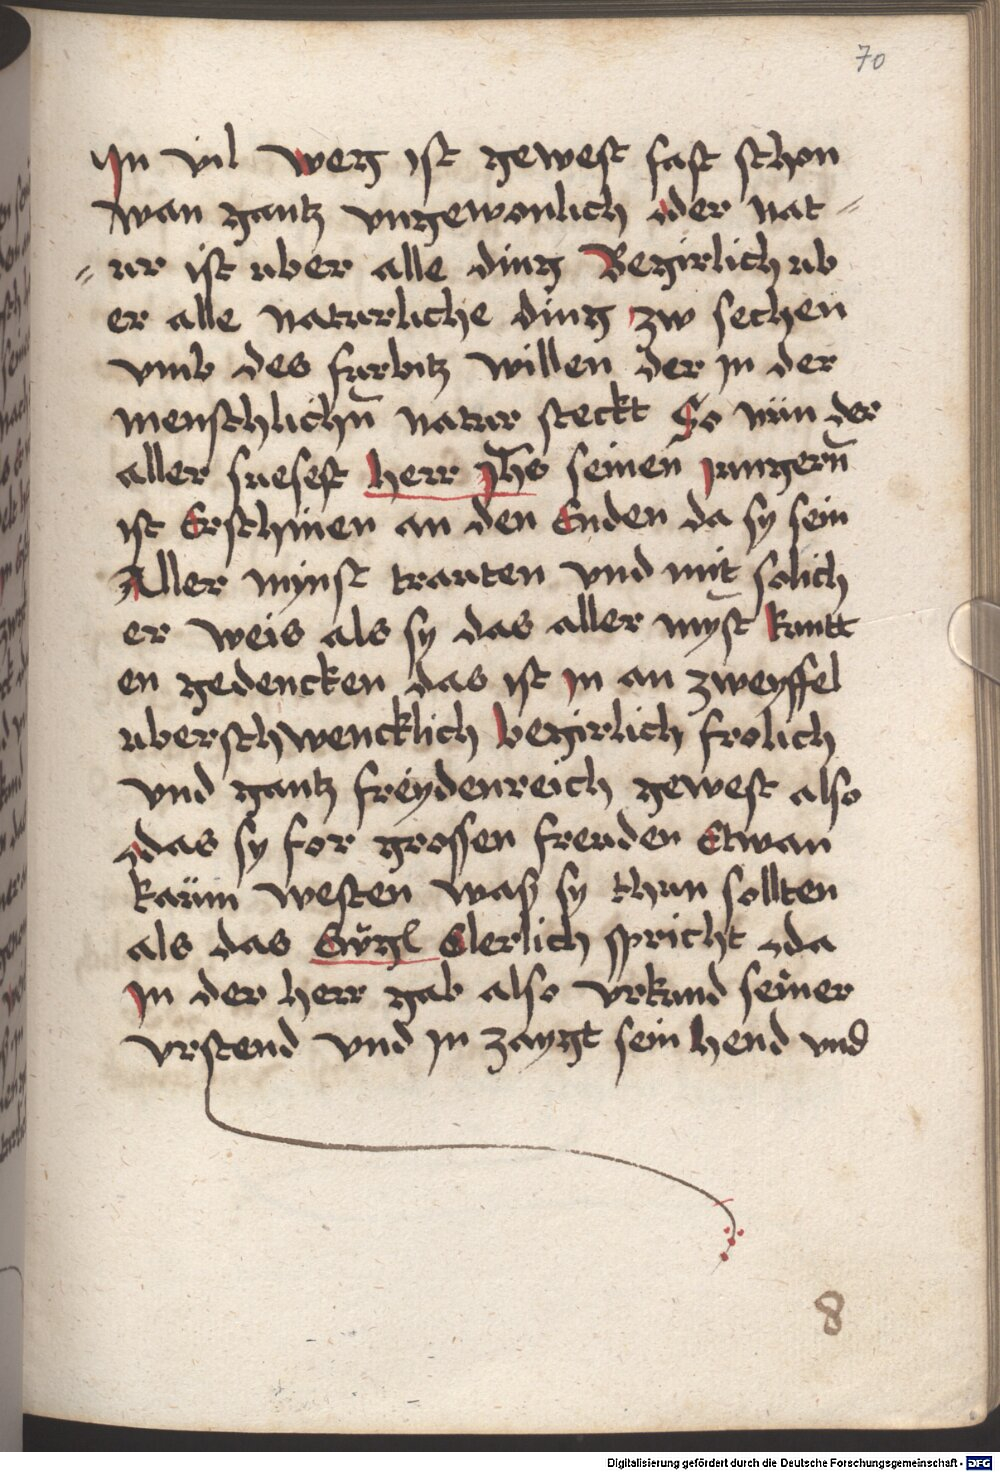 70
In vil weg ist gewest fast schon
wan gantz vngewonlich der nat=
=ur ist uber alle ding Begirlich ub
er alle naturliche ding zw sechen
vmb des furbitz willen der jn der
menschlichn̄ natur steckt So nün der
aller suesest herr Jh̄s seinen jungern̄
ist Erschinen an den Enden da sy sein
Aller mynst trauten vnd mit solich
er weis als sy das aller mȳst kuntt
en gedencken das ist jn an zweyffel
uberschwencklich begirlich frolich
vnd gantz freydenreich gewest also
das sy for grossen freuden Etwan
kaüm westen waß sy thun sollten
als das Ewgl Clerlich spricht da
jn der herr gab also vrkund seiner
vrstend vnd jn zaygt sein hend vnd
8
Digitalisierung gefördert durch die Deutsche Forschungsgemeinschaft - DFG